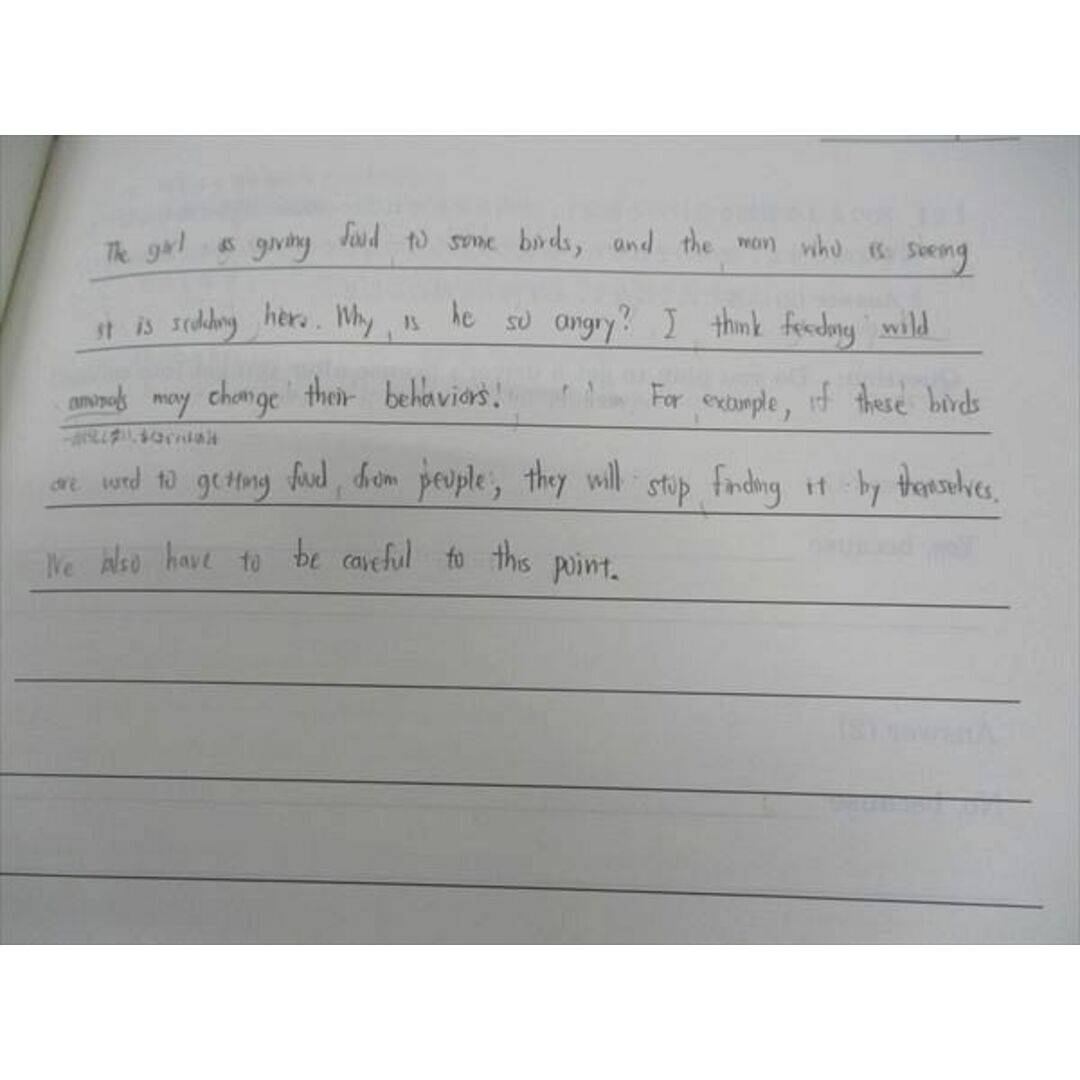 The girl is giving food to some birds, and the man who is seeing
it is scolding her. Why is he so angry? I think feeding wild
animals may change their behaviors! For example, if these birds
are used to getting food from people, they will stop finding it by themselves.
We also have to be careful to this point.
Yes, because
Answer (2)
No, because